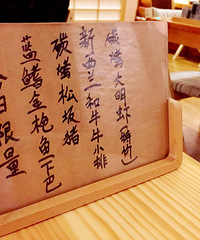 碳烤大明虾(时价)
新西兰和牛牛小排
碳烤松坂猪
蓝鳍金枪鱼下巴
今日限量